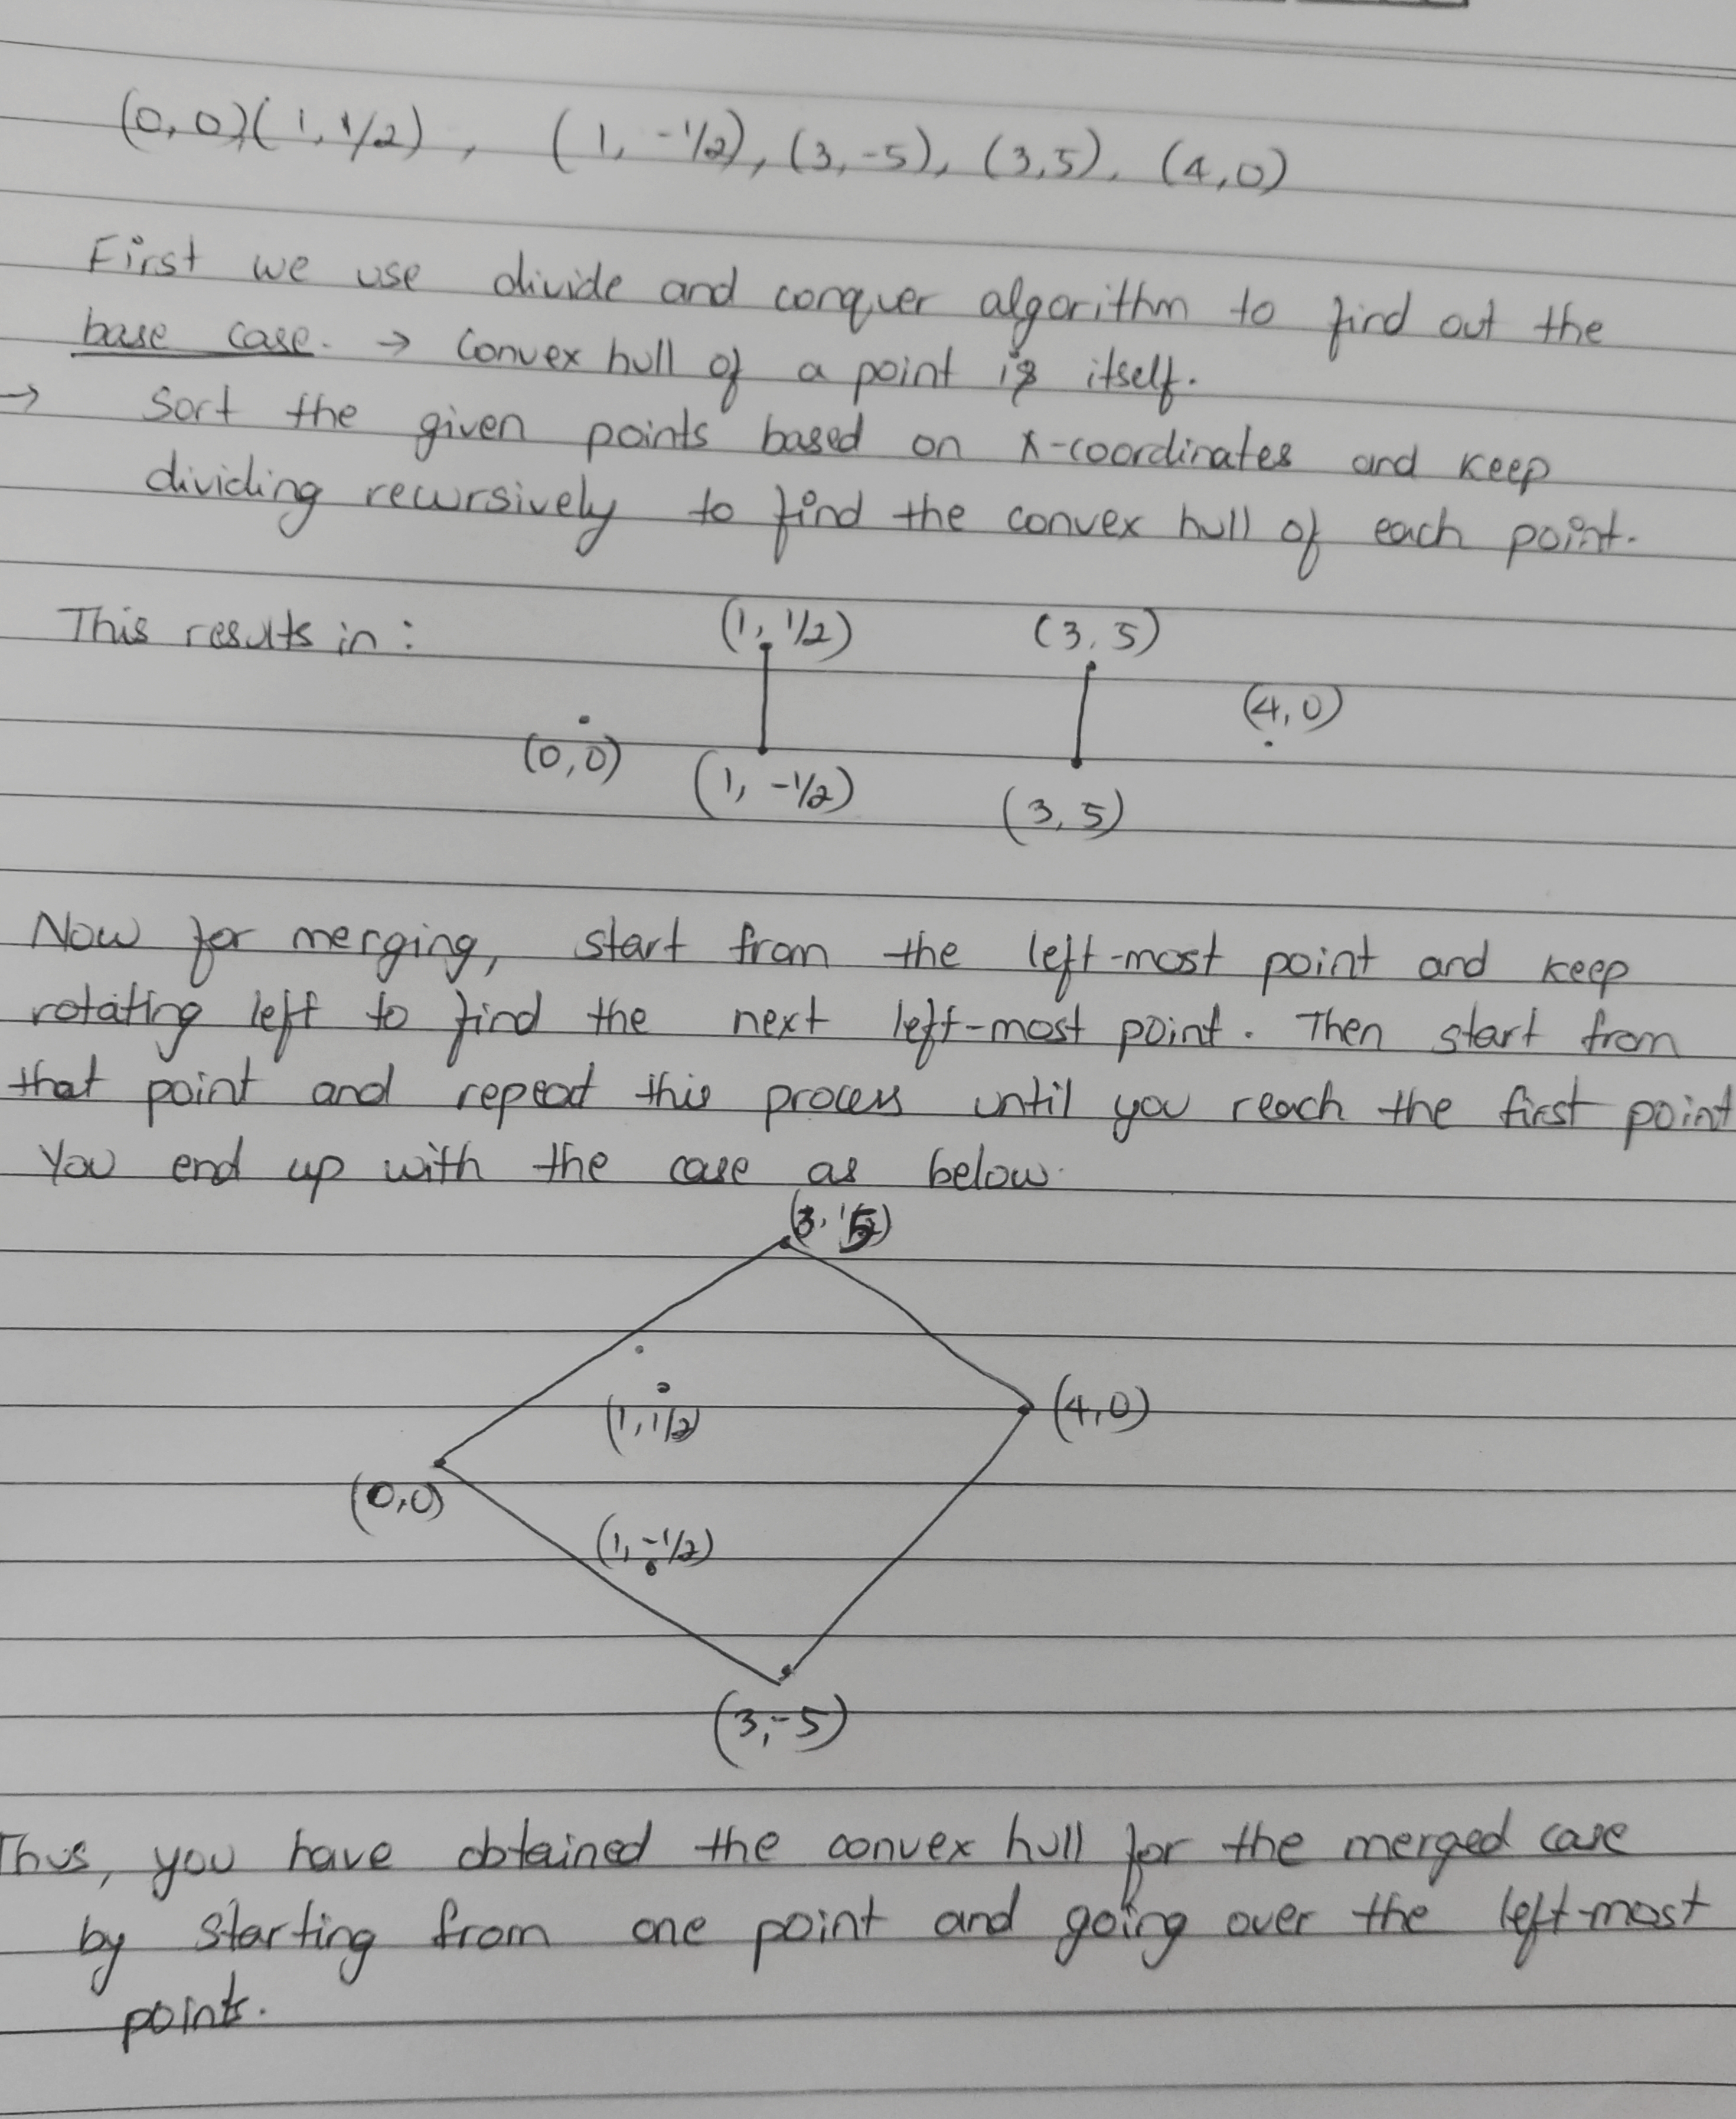 (0,0)(1,1/2), (1,-1/2), (3,-5), (3,5), (4,0)
First we use divide and conquer algorithm to find out the
base case. → Convex hull of a point is itself.
→ Sort the given points based on x-coordinates and keep
dividing recursively to find the convex hull of each point.
This results in:
(1, 1/2)
(3, 5)
(4,0)
(0,0)
(1, -1/2)
(3, 5)
Now for merging, start from the left-most point and keep
rotating left to find the next left-most point. Then start from
that point and repeat this process until you reach the first point
You end up with the case as below.
(3, 5)
(1, 1/2)
(4,0)
(0,0)
(1, -1/2)
(3,-5)
Thus, you have obtained the convex hull for the merged case
by starting from one point and going over the left-most
points.